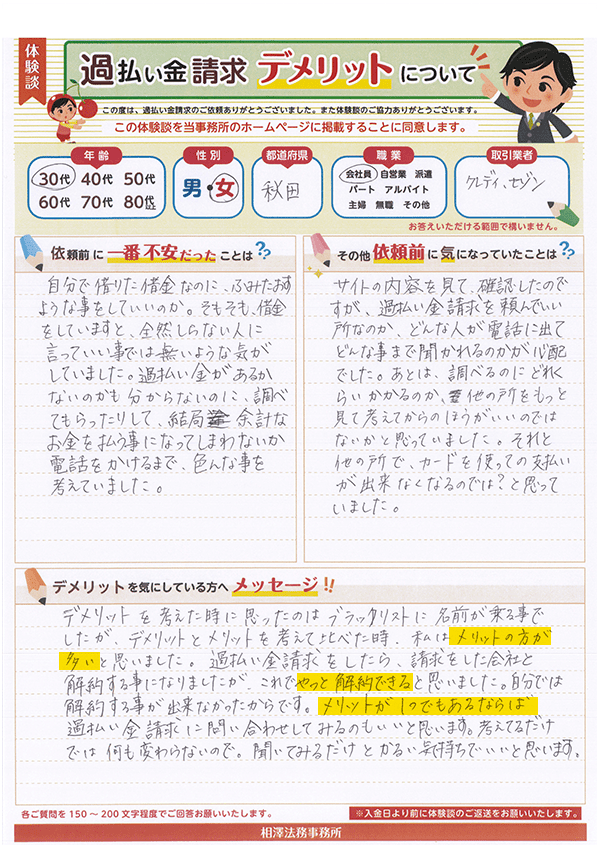 体験談
過払い金請求 デメリットについて
この度は、過払い金請求のご依頼ありがとうございました。また体験談のご協力ありがとうございます。
この体験談を当事務所のホームページに掲載することに同意します。
年齢
30代 40代 50代
60代 70代 80代以上
性別
男・女
都道府県
秋田
職業
会社員 自営業 派遣
パート アルバイト
主婦 無職 その他
取引業者
クレディ、セゾン
お答えいただける範囲で構いません。
依頼前に一番不安だったことは??
自分で借りた借金なのに、ふみたおす
ような事をしていいのか。そもそも、借金
をしていますと、全然しらない人に
言っていい事では無いような気が
していました。過払い金があるか
ないのかも分からないのに、調べ
てもらったりして、結局 余計な
お金を払う事になってしまわないか
電話をかけるまで、色んな事を
考えていました。
その他依頼前に気になっていたことは??
サイトの内容を見て、確認したので
すが、過払い金請求を頼んでいい
所なのか、どんな人が電話に出て
どんな事まで聞かれるのかが心配
でした。あとは、調べるのにどれく
らいかかるのか、他の所をもっと
見て考えてからのほうがいいのでは
ないかと思っていました。それと
他の所で、カードを使っての支払い
が出来なくなるのでは?と思って
いました。
デメリットを気にしている方へ メッセージ!!
デメリットを考えた時に思ったのはブラックリストに名前が乗る事で
したが、デメリットとメリットを考えて比べた時、私はメリットの方が
多いと思いました。過払い金請求をしたら、請求をした会社と
解約する事になりましたが、これでやっと解約できると思いました。自分では
解約する事が出来なかったからです。メリットが1つでもあるならば
過払い金請求に問い合わせしてみるのもいいと思います。考えてるだけ
では何も変わらないので。聞いてみるだけとかるい気持ちでいいと思います。
各ご質問を150～200文字程度でご回答お願いいたします。
※入金日より前に体験談のご返送をお願いいたします。
相澤法務事務所